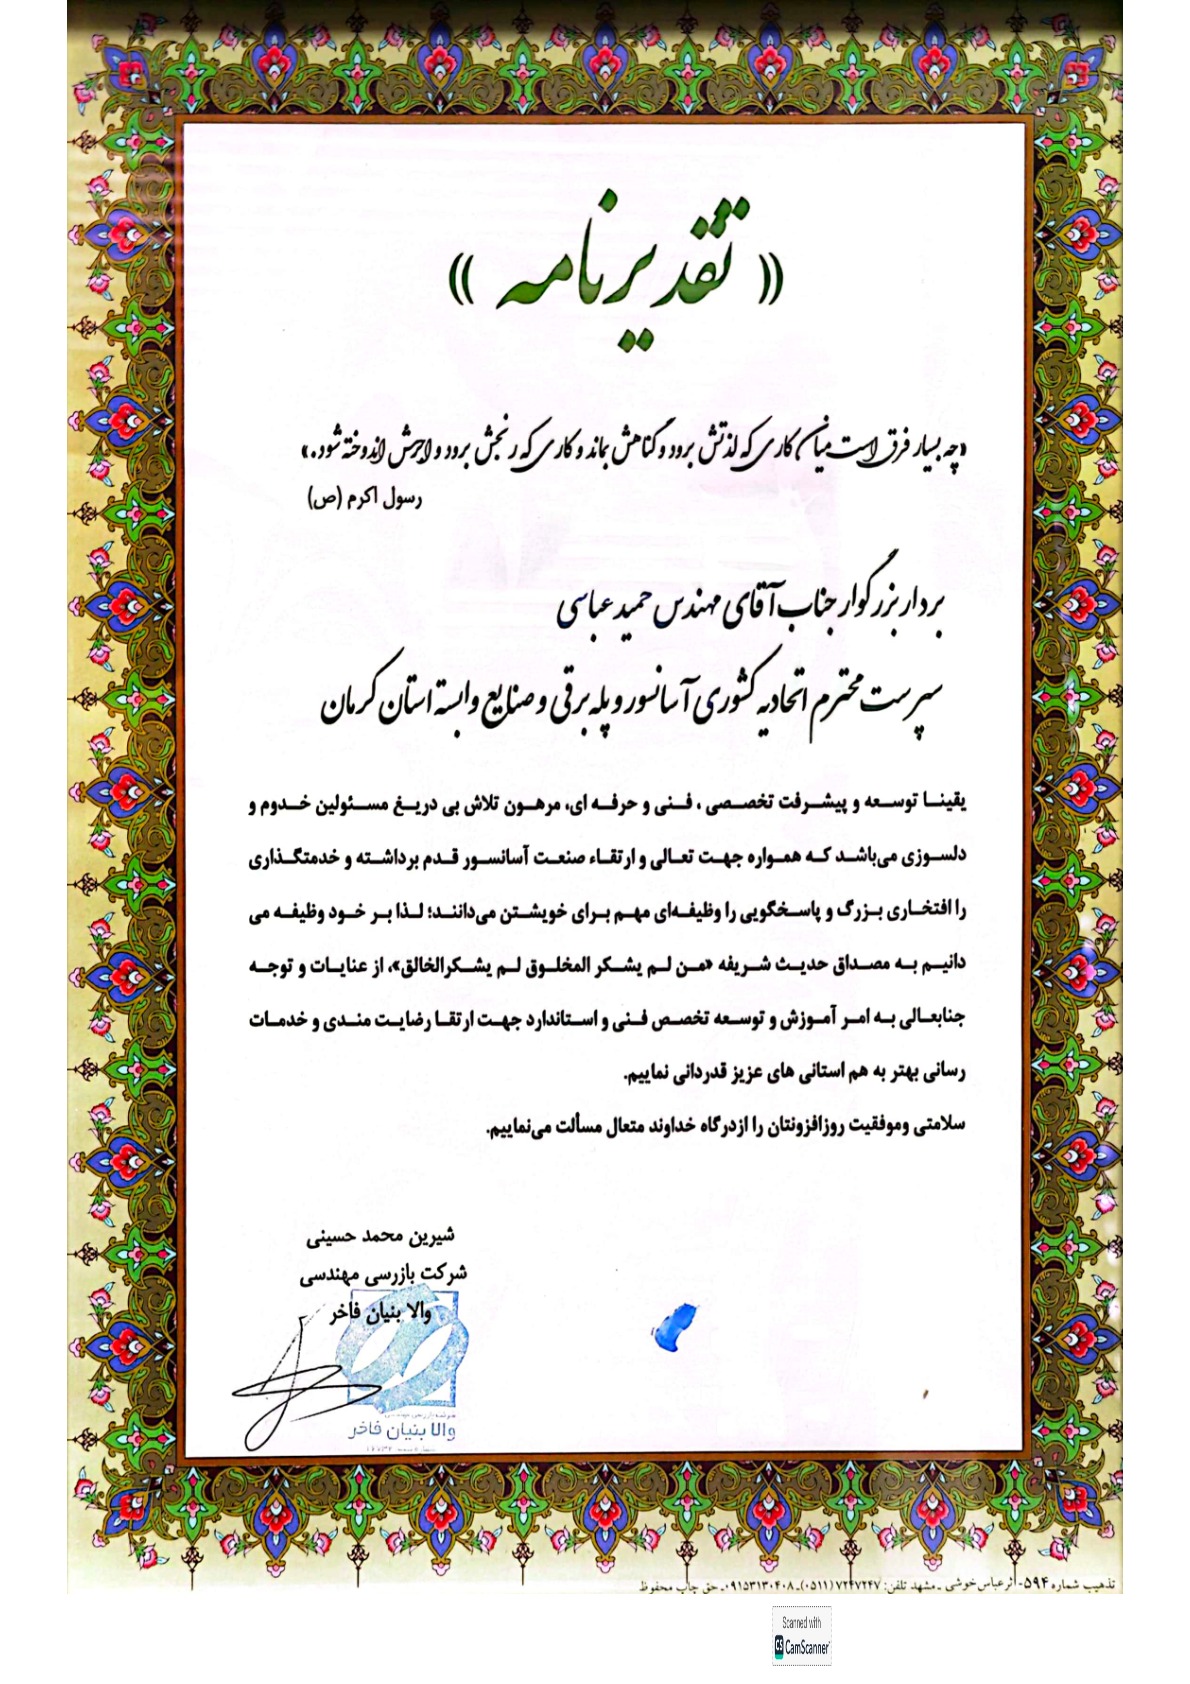 « تقدیرنامه »
«چه بسیار فرق است میان کاری که لذتش برود و گناهش بماند و کاری که رنجش برود و اجرش اندوخته شود.»
رسول اکرم (ص)
بردار بزرگوار جناب آقای مهندس حمید عباسی
سرپرست محترم اتحادیه کشوری آسانسور و پله برقی و صنایع وابسته استان کرمان
یقینا توسعه و پیشرفت تخصصی ، فنی و حرفه ای، مرهون تلاش بی دریغ مسئولین خدوم و
دلسوزی می‌باشد که همواره جهت تعالی و ارتقاء صنعت آسانسور قدم برداشته و خدمتگذاری
را افتخاری بزرگ و پاسخگویی را وظیفه‌ای مهم برای خویشتن می‌دانند؛ لذا بر خود وظیفه می
دانیم به مصداق حدیث شریفه «من لم یشکر المخلوق لم یشکرالخالق»، از عنایات و توجه
جنابعالی به امر آموزش و توسعه تخصص فنی و استاندارد جهت ارتقا رضایت مندی و خدمات
رسانی بهتر به هم استانی های عزیز قدردانی نماییم.
سلامتی وموفقیت روزافزونتان را ازدرگاه خداوند متعال مسألت می‌نماییم.
شیرین محمد حسینی
شرکت بازرسی مهندسی
والا بنیان فاخر
والا بنیان فاخر
تذهیب شماره ۵۹۴- اثرعباس خوشی ـ مشهد تلفن: ۷۲۴۷۲۴۷ (۰۵۱۱)ـ ۰۹۱۵۳۱۳۰۴۰۸ـ حق چاپ محفوظ
Scanned with
CS CamScanner